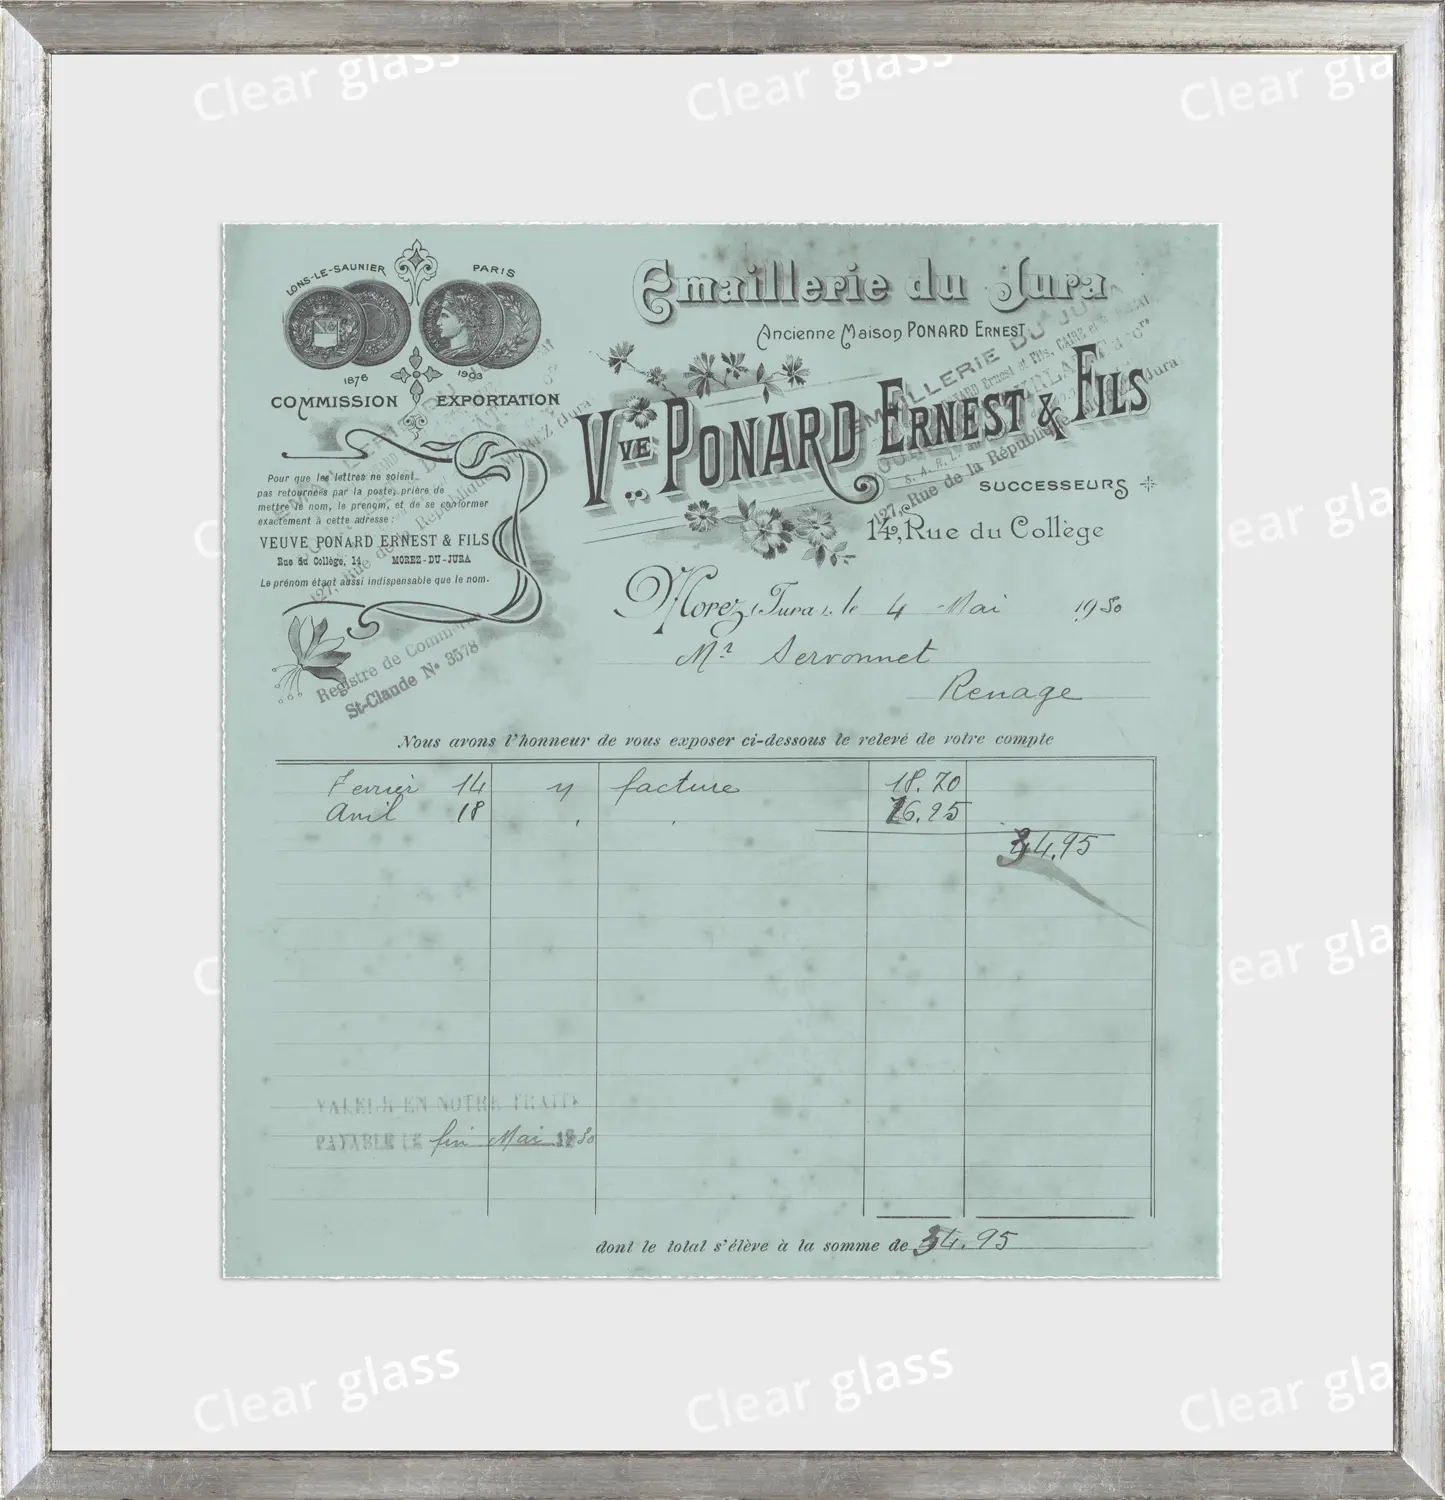 Clear glass Clear glass Clear gla
LONS-LE-SAUNIER PARIS
1876 1903
COMMISSION EXPORTATION
Emaillerie du Jura
Ancienne Maison PONARD ERNEST
Vve PONARD ERNEST & FILS
SUCCESSEURS
14, Rue du Collège
EMAILLERIE DU JURA
127, Rue de la République
Pour que les lettres ne soient
pas retournées par la poste, prière de
mettre le nom, le prenom, et de se conformer
exactement à cette adresse:
VEUVE PONARD ERNEST & FILS
Rue du Collège, 14 MOREZ-DU-JURA
Le prénom étant aussi indispensable que le nom.
Registre de Comm
St-Claude N° 3578
Morez (Jura), le 4 Mai 1930
Mr Servonnet
Renage
Nous avons l'honneur de vous exposer ci-dessous le relevé de votre compte
Fevrier 14 facture 18.70
Avril 18 16.25
34.95
VALEUR EN NOTRE TRAITE
PAYABLE LE fin Mai 1930
dont le total s'élève à la somme de 34.95
Clear glass Clear glass Clear gla